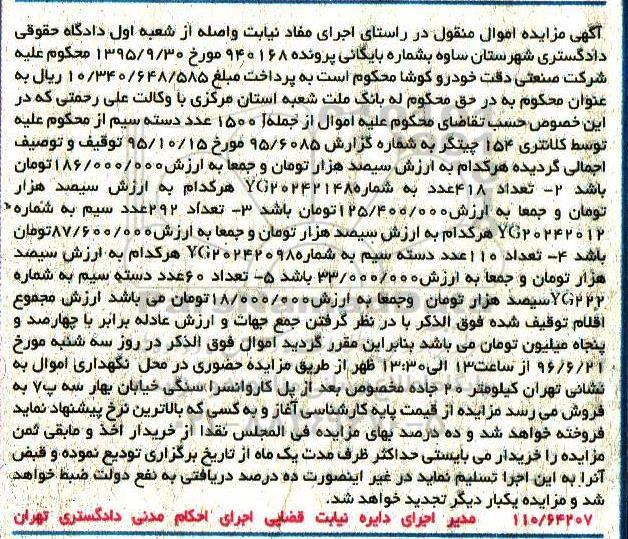 آگهی مزایده اموال منقول در راستای اجرای مفاد نیابت واصله از شعبه اول دادگاه حقوقی
دادگستری شهرستان ساوه بشماره بایگانی پرونده ۹۴۰۱۶۸ مورخ ۱۳۹۵/۹/۳۰ محکوم علیه
شرکت صنعتی دقت خودرو کوشا محکوم است به پرداخت مبلغ ۱۰/۳۴۰/۶۴۸/۵۸۵ ریال به
عنوان محکوم به در حق محکوم له بانک ملت شعبه استان مرکزی با وکالت علی رحمتی که در
این خصوص حسب تقاضای محکوم علیه اموال از جمله۱ ۱۵۰۰ عدد دسته سیم از محکوم علیه
توسط کلانتری ۱۵۴ چیتگر به شماره گزارش ۹۵/۶۰۸۵ مورخ ۹۵/۱۰/۱۵ توقیف و توصیف
اجمالی گردیده هرکدام به ارزش سیصد هزار تومان و جمعا به ارزش۱۸۶/۰۰۰/۰۰۰تومان
باشد ۲- تعداد ۴۱۸عدد به شمارهYG۲۰۲۴۲۱۴۸ هرکدام به ارزش سیصد هزار
تومان و جمعا به ارزش۱۲۵/۴۰۰/۰۰۰تومان باشد ۳- تعداد ۲۹۲عدد سیم به شماره
YG۲۰۲۴۲۰۱۲ هرکدام به ارزش سیصد هزار تومان و جمعا به ارزش۸۷/۶۰۰/۰۰۰تومان
باشد ۴- تعداد ۱۱۰عدد دسته سیم به شمارهYG۲۰۲۴۲۰۹۸ هرکدام به ارزش سیصد
هزار تومان و جمعا به ارزش۳۳/۰۰۰/۰۰۰ باشد ۵- تعداد ۶۰عدد دسته سیم به شماره
YG۲۲۲سیصد هزار تومان وجمعا به ارزش۱۸/۰۰۰/۰۰۰تومان می باشد ارزش مجموع
اقلام توقیف شده فوق الذکر با در نظر گرفتن جمع جهات و ارزش عادله برابر با چهارصد و
پنجاه میلیون تومان می باشد بنابراین مقرر گردید اموال فوق الذکر در روز سه شنبه مورخ
۹۶/۶/۲۱ از ساعت۱۳ الی۱۳:۳۰ ظهر از طریق مزایده حضوری در محل نگهداری اموال به
نشانی تهران کیلومتر ۲۰ جاده مخصوص بعد از پل کاروانسرا سنگی خیابان بهار سه پ۷ به
فروش می رسد مزایده از قیمت پایه کارشناسی آغاز و به کسی که بالاترین نرخ پیشنهاد نماید
فروخته خواهد شد و ده درصد بهای مزایده فی المجلس نقدا از خریدار اخذ و مابقی ثمن
مزایده را خریدار می بایستی حداکثر ظرف مدت یک ماه از تاریخ برگزاری تودیع نموده و قبض
آنرا به این اجرا تسلیم نماید در غیر اینصورت ده درصد دریافتی به نفع دولت ضبط خواهد
شد و مزایده یکبار دیگر تجدید خواهد شد.
۱۱۰/۶۴۲۰۷ مدیر اجرای دایره نیابت قضایی اجرای احکام مدنی دادگستری تهران